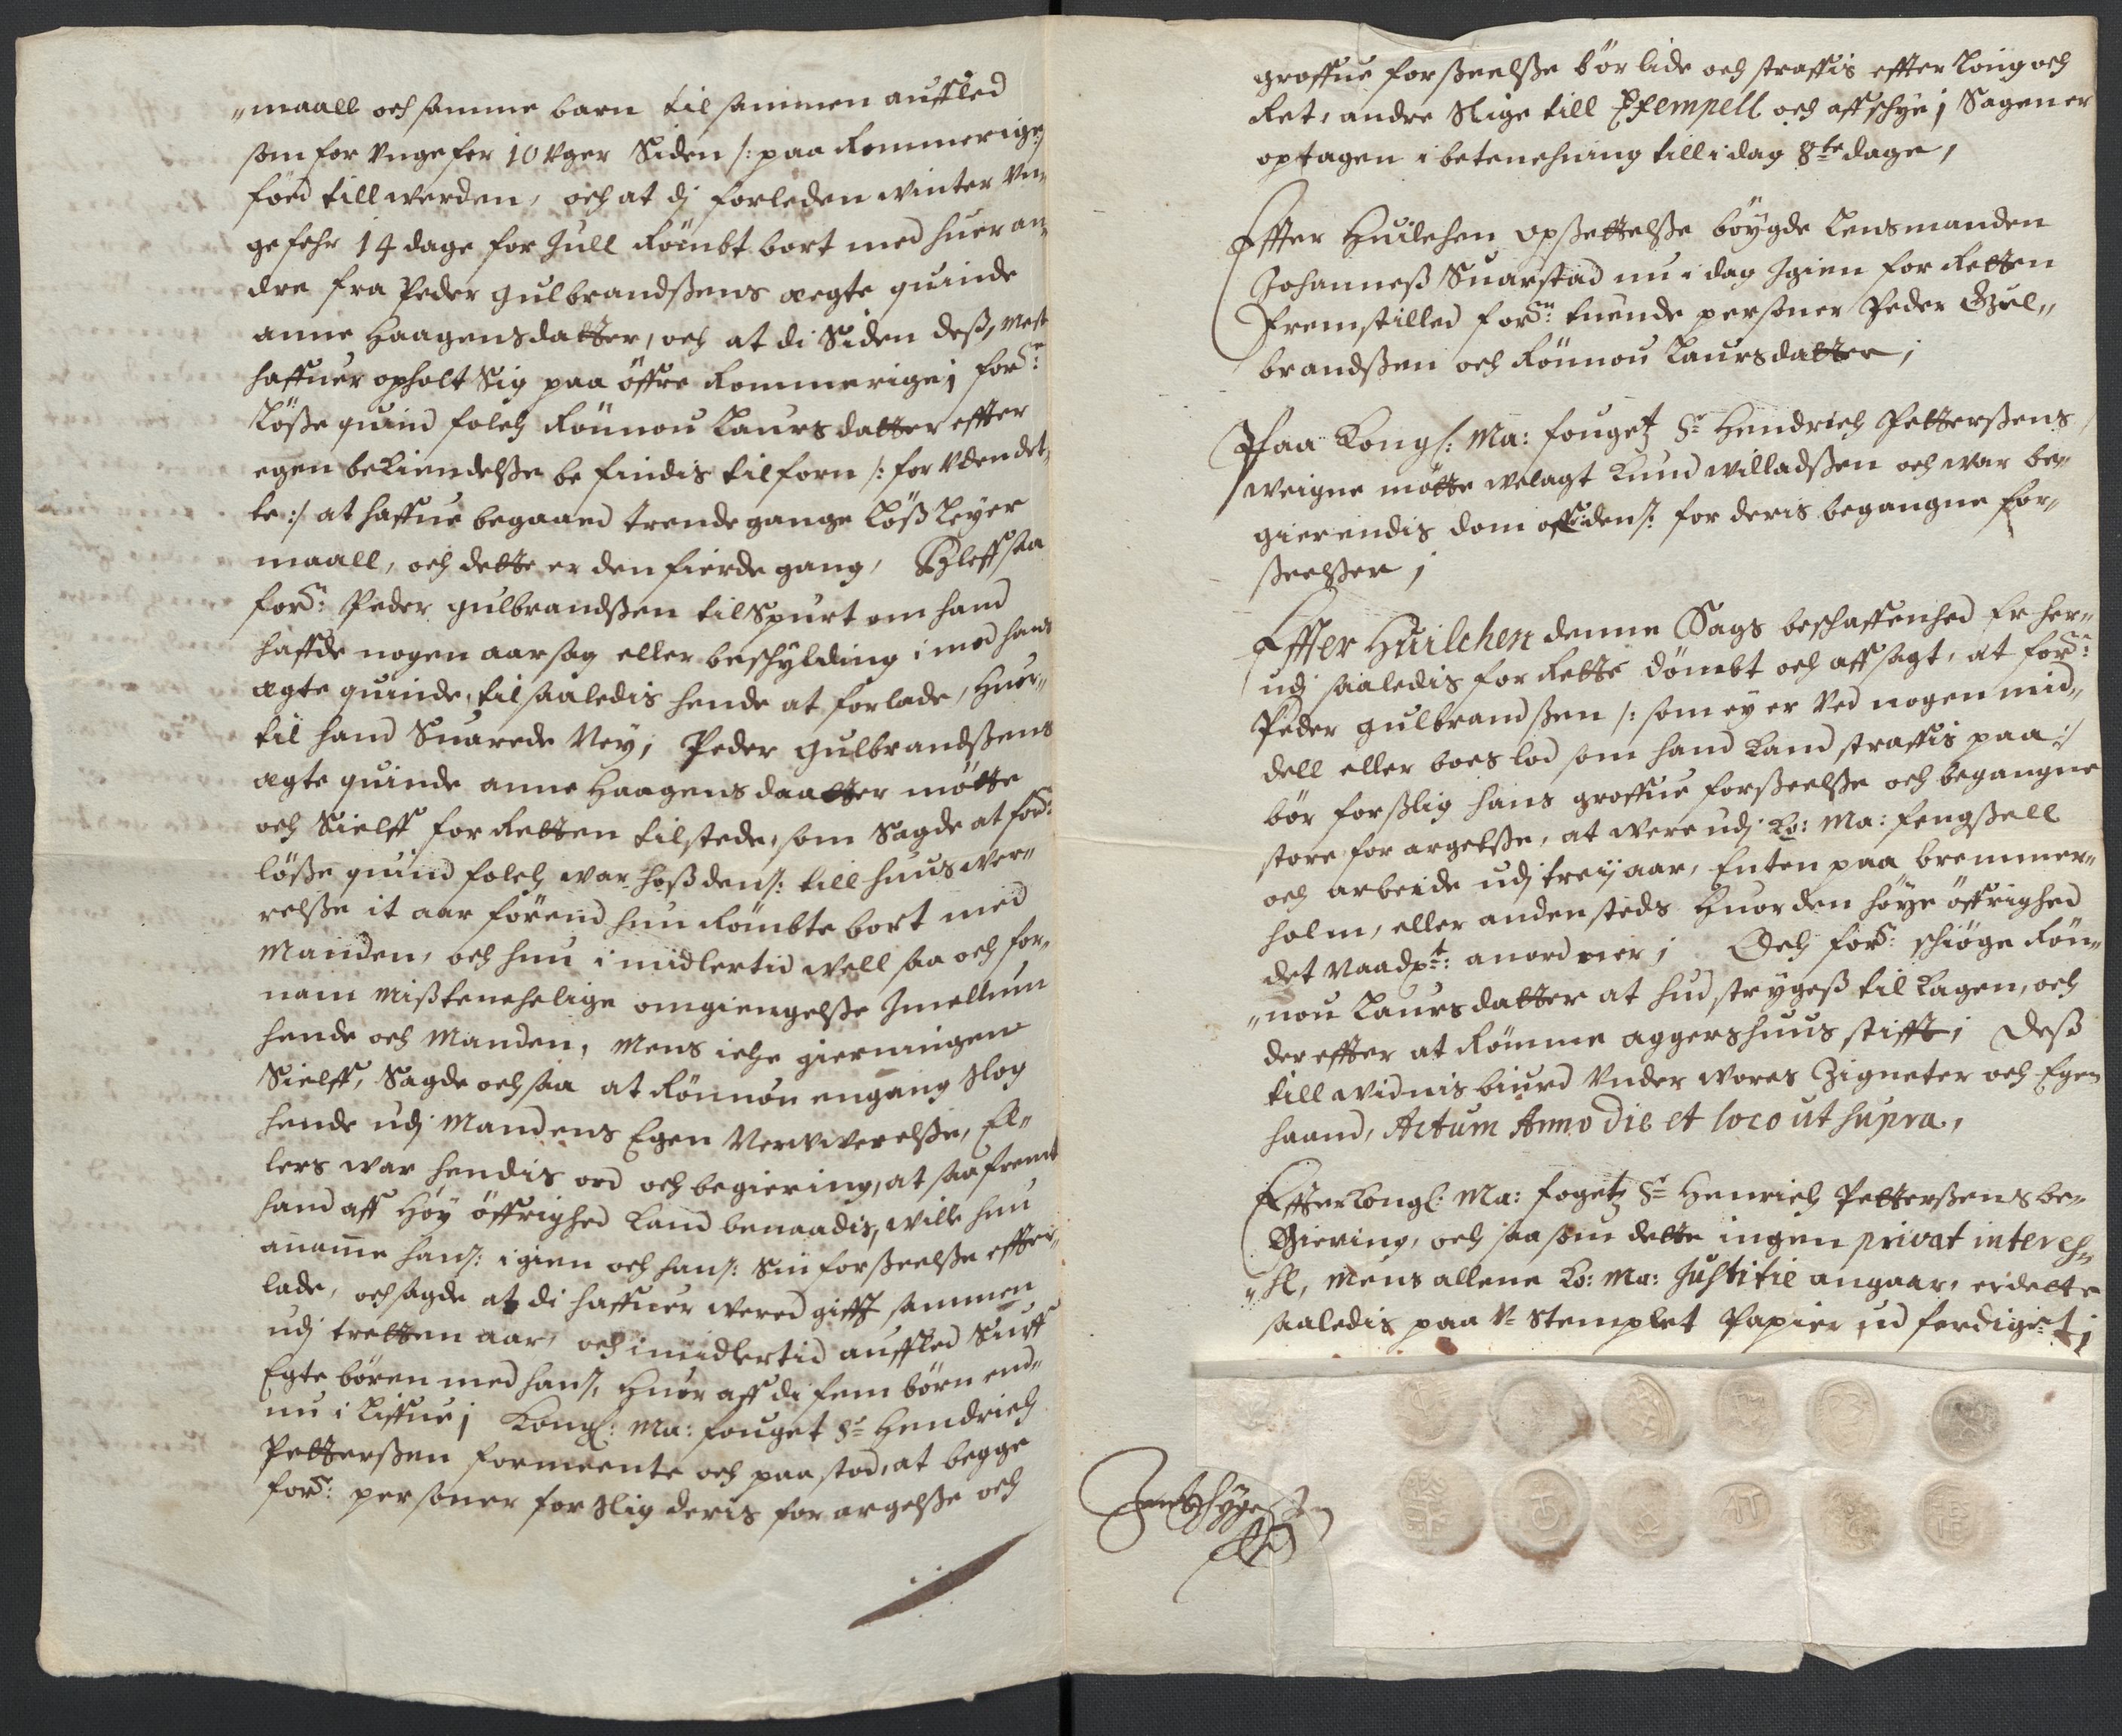 „maall och samme barn til sammen aufled
som for ungefer 10 Uger Siden /: paa Rommerige:/
föed till werden, och at dj forleden winter un„
gefehr 14 dage for Jull Römbt bort med huer an„
dre fra Peder gulbrandßens aegte quinde
anne Haagensdatter, och at di Siden deß, mest
haffuer opholt Sig paa öffre Rommerige; forsch:
Löße quind folch Rönnou Laursdatter effter
egen bekiendelße befindis tilforn /: for uden det„
te :/ at haffue begaaed trende gange Löß Leyer
maall, och dette er den fierde gang, Bleff saa
forsch: Peder gulbrandßen tilSpurt om hand
haffde nogen aarsag eller beschylding imod hans
ægte quinde, til saaledis hende at forlade, huor„
til hand Suarede Ney; Peder gulbrandßens
ægte quinde anne Haagens daatter mötte
och Sielff for Retten tilstede, som Sagde at forsch:
löße quind folch war hoß dens: till huus wer„
relße it aar förend hun Römbte bort med
Manden, och hun i midlertid well saa och for„
nam mißtenchelige omgiengelße Jmellum
hende och Manden, Mens iche gierningen
Sielff, Sagde och saa at Rönnou engang slog
hende udj Mandens Egen Nerwerelße, El„
lers war hendis ord och begiering, at saafremt
hand aff Höy öffrighed kand benaadis, wille hun
anamme hans: igien och hans: Sin forßeelße effter„
lade, och sagde at di haffuer wered gifft sammen
udj tretten aar, och imidlertid aufflled Siuff
Egte börn med hans, Huor aff di fem börn end„
nu i Liffue; Kongl: Ma: fouget Sr Hendrich
Petterßen formeente och paastod, at begge
forsch: personer for slig deris forargelße och
groffue forßeelße bör lide och straffis effter Loug och
Ret, andre Slige till Exempell och affschye; Sagen er
optagen i betenchning till i dag 8te dage,
Effter Huilchen opßettelße böygde Lensmanden
Johanneß Suarstad nu i dag Jgien for Retten
fremstilled forsch: tuende personer Peder Gul„
brandßen och Rönnou Laursdatter;
Paa Kongl: Ma: fougetz Sr Hendrich Petterßens
weigne mötte welagt Knud willadßen och war be„
gierendis dom offuer dens: for deris begangne for„
ßeelßer;
Effter Huilchen denne Sags beschaffenhed Er her„
udj saaledis for Rette dömbt och affsagt, at forsch:
Peder gulbrandßen /: som ey er Ved nogen mid„
dell eller boes lod som hand kand straffis paa :/
bör for slig hans groffue forßeelße och begangne
store forargelße, at were udj Ko: Ma: fengßell
och arbeide udj treij aar, Enten paa bremmer„
holm, eller andensteds Huor den höye öffrighed
det naadgst: anordner; Och forsch: schiöge Rön„
„nou Laursdatter at hudstrygeß til Kagen, och
der effter at Römme aggershuus stifft; Deß
till widnisbiurd Under wores Zigneter och Egen
haand, Actum Anno Die et loco ut supra,
Effter Kongl: Ma: fogetz Sr Henrich Petterßens be„
Giering, och saasom dette ingen privat interes„
„se, Mens allene Ko: Ma: Justitie angaar, er dette
saaledis paa U-Stemplet Papiir udferdiget;